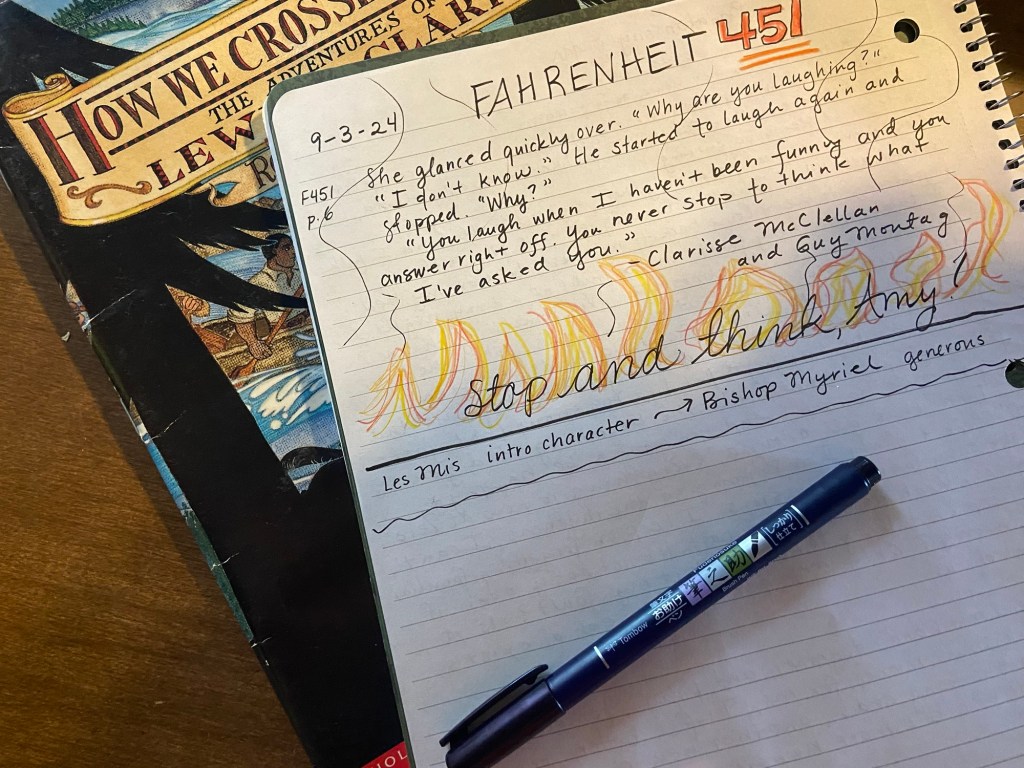 HOW WE CROSS
THE ADVENTURES OF
LEW
CLARK
FAHRENHEIT 451
9-3-24
F451
p. 6
She glanced quickly over. "Why are you laughing?"
"I don't know." He started to laugh again and
stopped. "Why?"
"You laugh when I haven't been funny and you
answer right off. You never stop to think what
I've asked you."
-Clarisse McClellan
and Guy Montag
Stop and think, Amy!
Les Mis intro character → Bishop Myriel generous
Tombow
お助け
ペン
筆之助
しっかり
仕立て